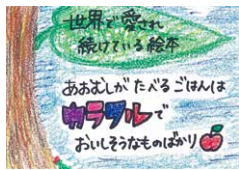 世界で愛され
続けている絵本
あおむしがたべるごはんは
カラフルで
おいしそうなものばかり